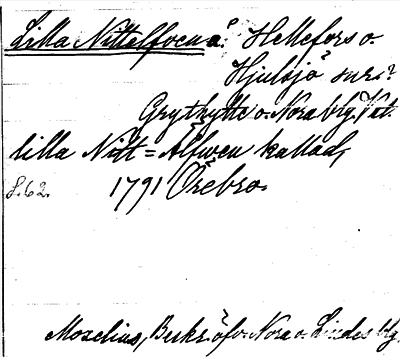 Lilla Nittelfocen å. Hellefors o.
Hjulsjö snr:
Grythytte o. Nora blg. Vat.
lilla Nitt=Älfwen kallad,
S. 62. 1791 Örebro.
Moxelius, Beskr. öfv. Nora o. Lindes blg.